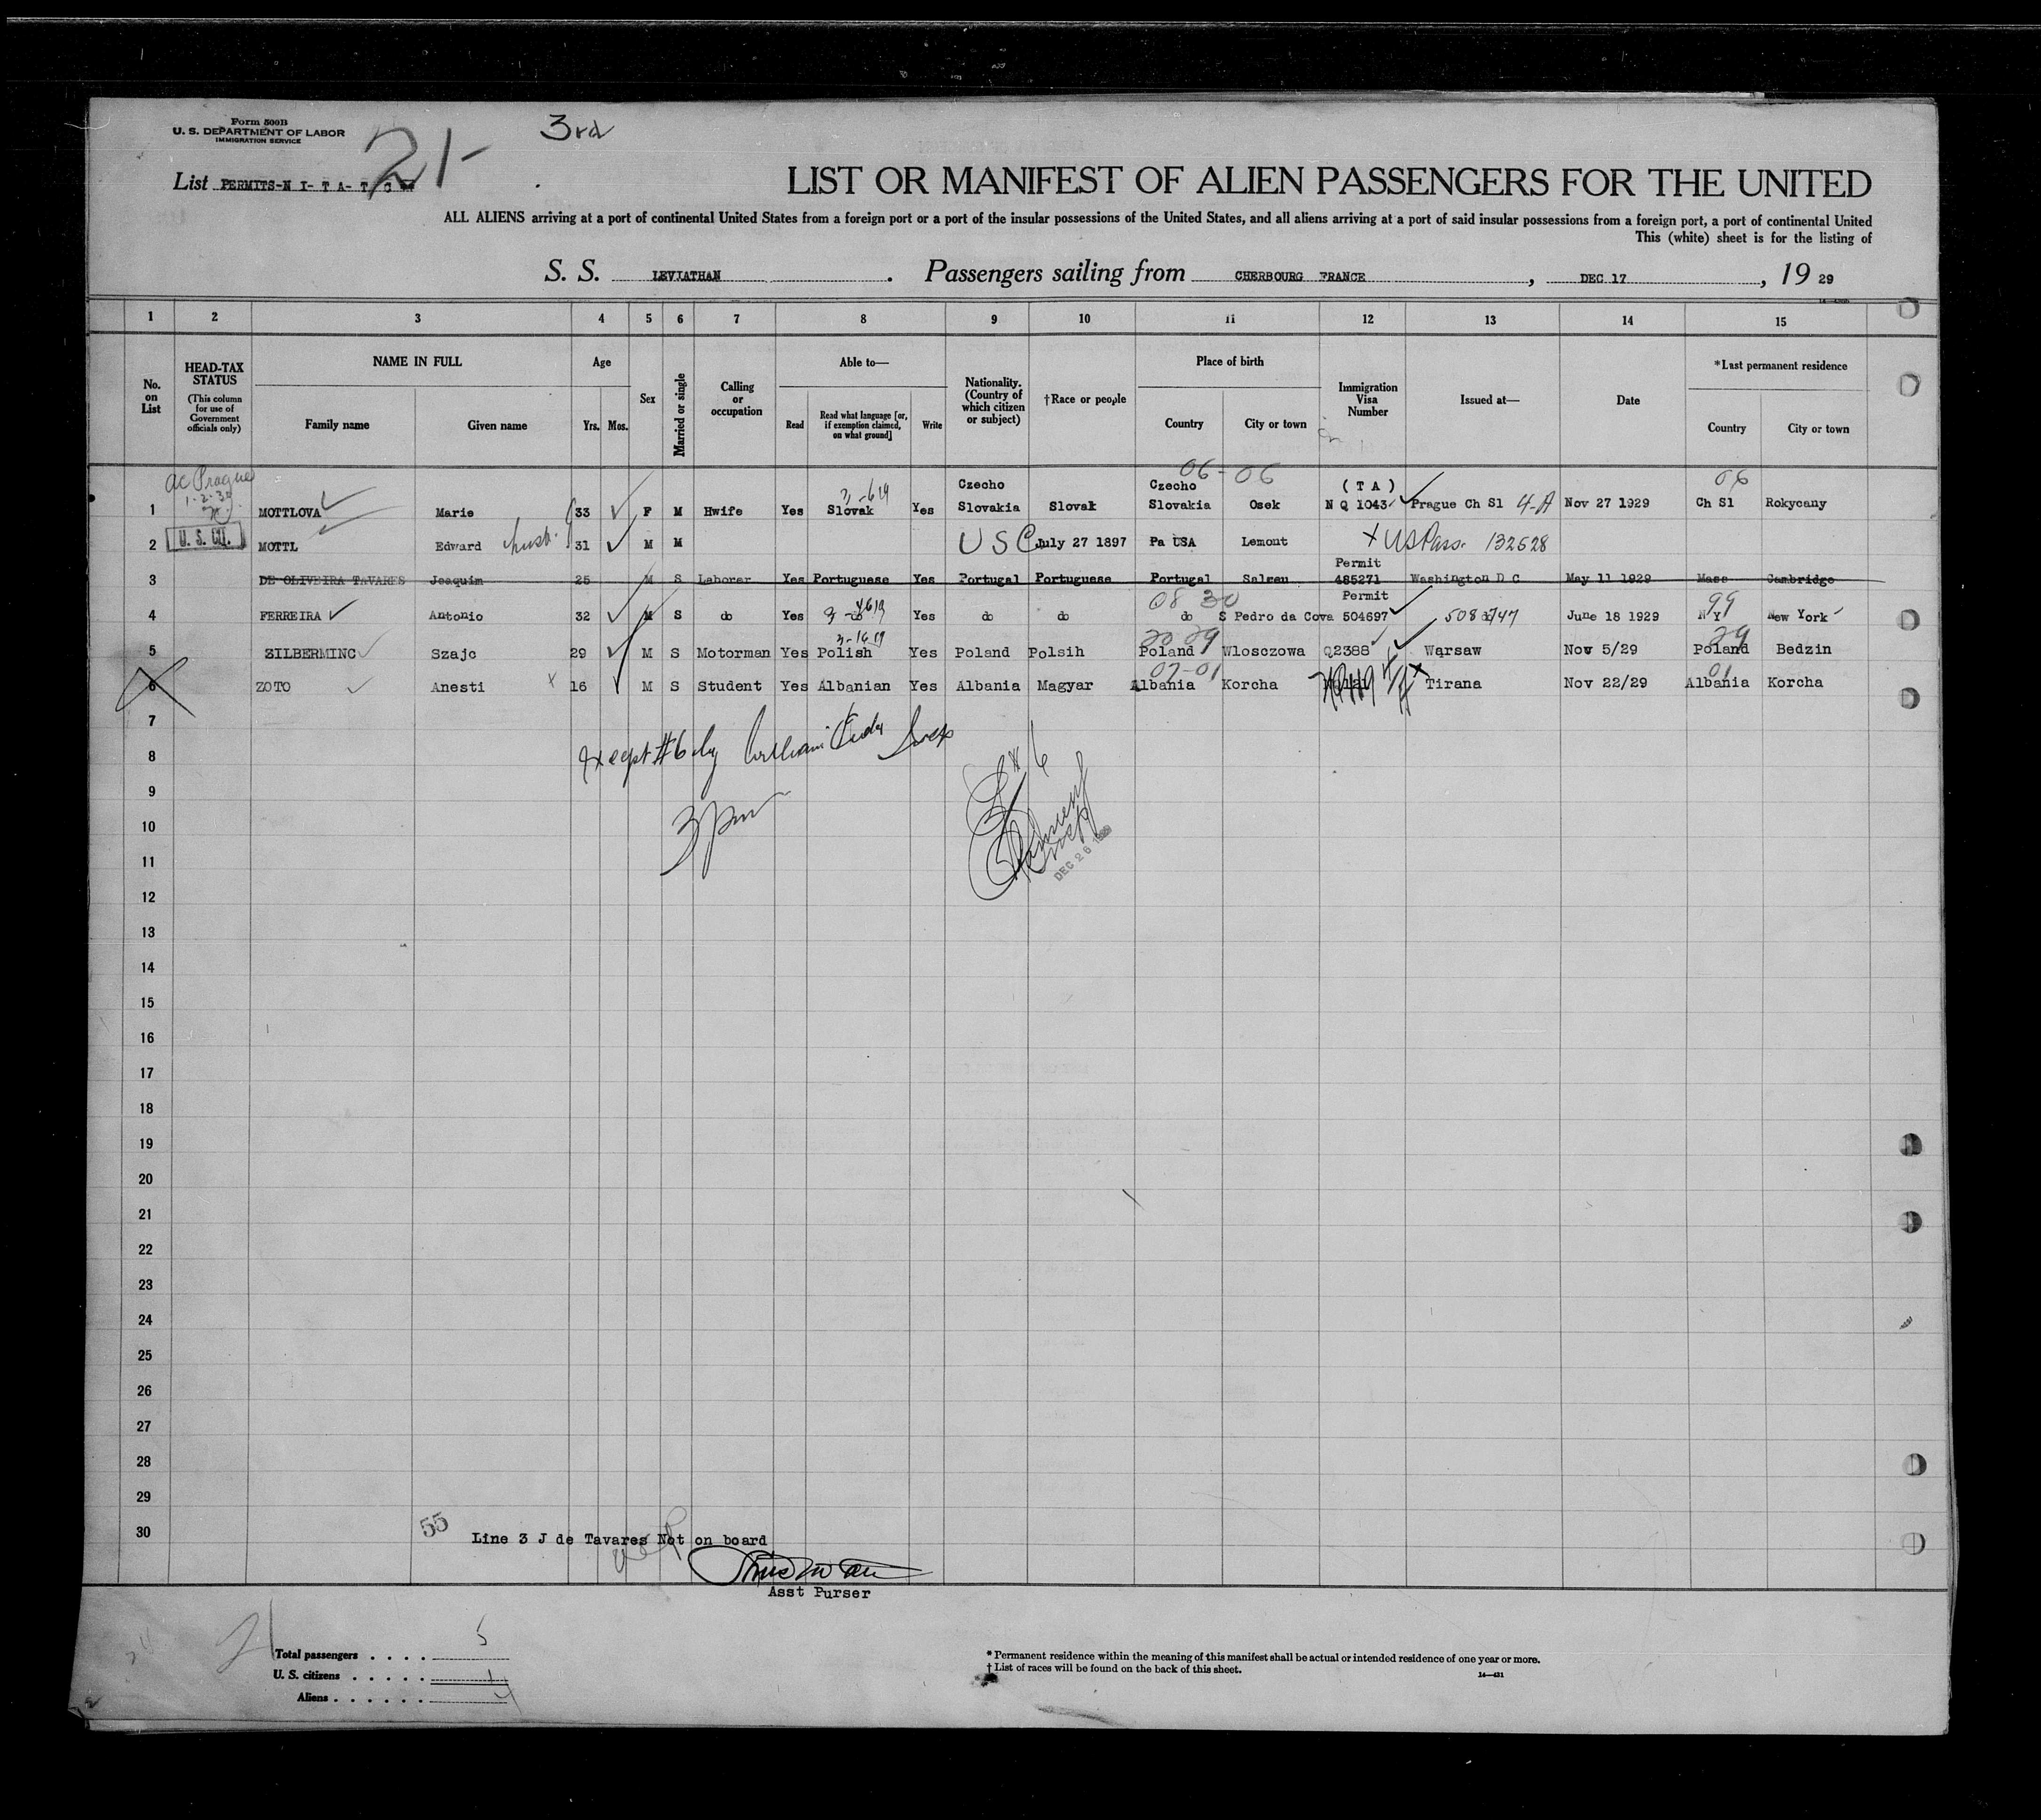 Form 500B
U. S. DEPARTMENT OF LABOR
IMMIGRATION SERVICE
3rd
21-
List PERMITS-N I- T A- T C
LIST OR MANIFEST OF ALIEN PASSENGERS FOR THE UNITED
ALL ALIENS arriving at a port of continental United States from a foreign port or a port of the insular possessions of the United States, and all aliens arriving at a port of said insular possessions from a foreign port, a port of continental United
This (white) sheet is for the listing of
S. S. LEVIATHAN . Passengers sailing from CHERBOURG FRANCE , DEC 17 , 19 29
1 2 3 4 5 6 7 8 9 10 11 12 13 14 15
No. on List
HEAD-TAX STATUS (This column for use of Government officials only)
NAME IN FULL
Family name Given name
Age
Yrs. Mos.
Sex
Married or single
Calling or occupation
Able to—
Read Read what language [or, if exemption claimed, on what ground] Write
Nationality. (Country of which citizen or subject)
†Race or people
Place of birth
Country City or town
Immigration Visa Number
Issued at—
Date
*Last permanent residence
Country City or town
ac Prague 06-06 06
1-2-30 Czecho Czecho (TA)
1 MOTTLOVA Marie 33 F M Hwife Yes Slovak Yes Slovakia Slovak Slovakia Osek N Q 1043 Prague Ch Sl 4-A Nov 27 1929 Ch Sl Rokycany
U. S. CIT.
2 MOTTL Edward husb. 31 M M U S C July 27 1897 Pa USA Lemont X US Pass. 132628
Permit
3 DE OLIVEIRA TAVARES Joaquim 25 M S Laborer Yes Portuguese Yes Portugal Portuguese Portugal Salreu 485271 Washington D C May 11 1929 Mass Cambridge
08 30 Permit 99
4 FERREIRA Antonio 32 M S do Yes do Yes do do do S Pedro da Cova 504697 do June 18 1929 N Y New York
5 ZILBERMINC Szajc 29 M S Motorman Yes Polish Yes Poland Polsih Poland Wlosczowa Q2388 Warsaw Nov 5/29 Poland Bedzin
01
6 ZOTO Anesti X 16 M S Student Yes Albanian Yes Albania Magyar Albania Korcha Tirana Nov 22/29 Albania Korcha
7
8 Except #6 by
9
10 3 pm
11 DEC 26 1929
12
13
14
15
16
17
18
19
20
21
22
23
24
25
26
27
28
29
30
55
Line 3 J de Tavares Not on board
Asst Purser
21
Total passengers . . . . 5
U. S. citizens . . . . . 1
Aliens . . . . . . 4
* Permanent residence within the meaning of this manifest shall be actual or intended residence of one year or more.
† List of races will be found on the back of this sheet.
14—421